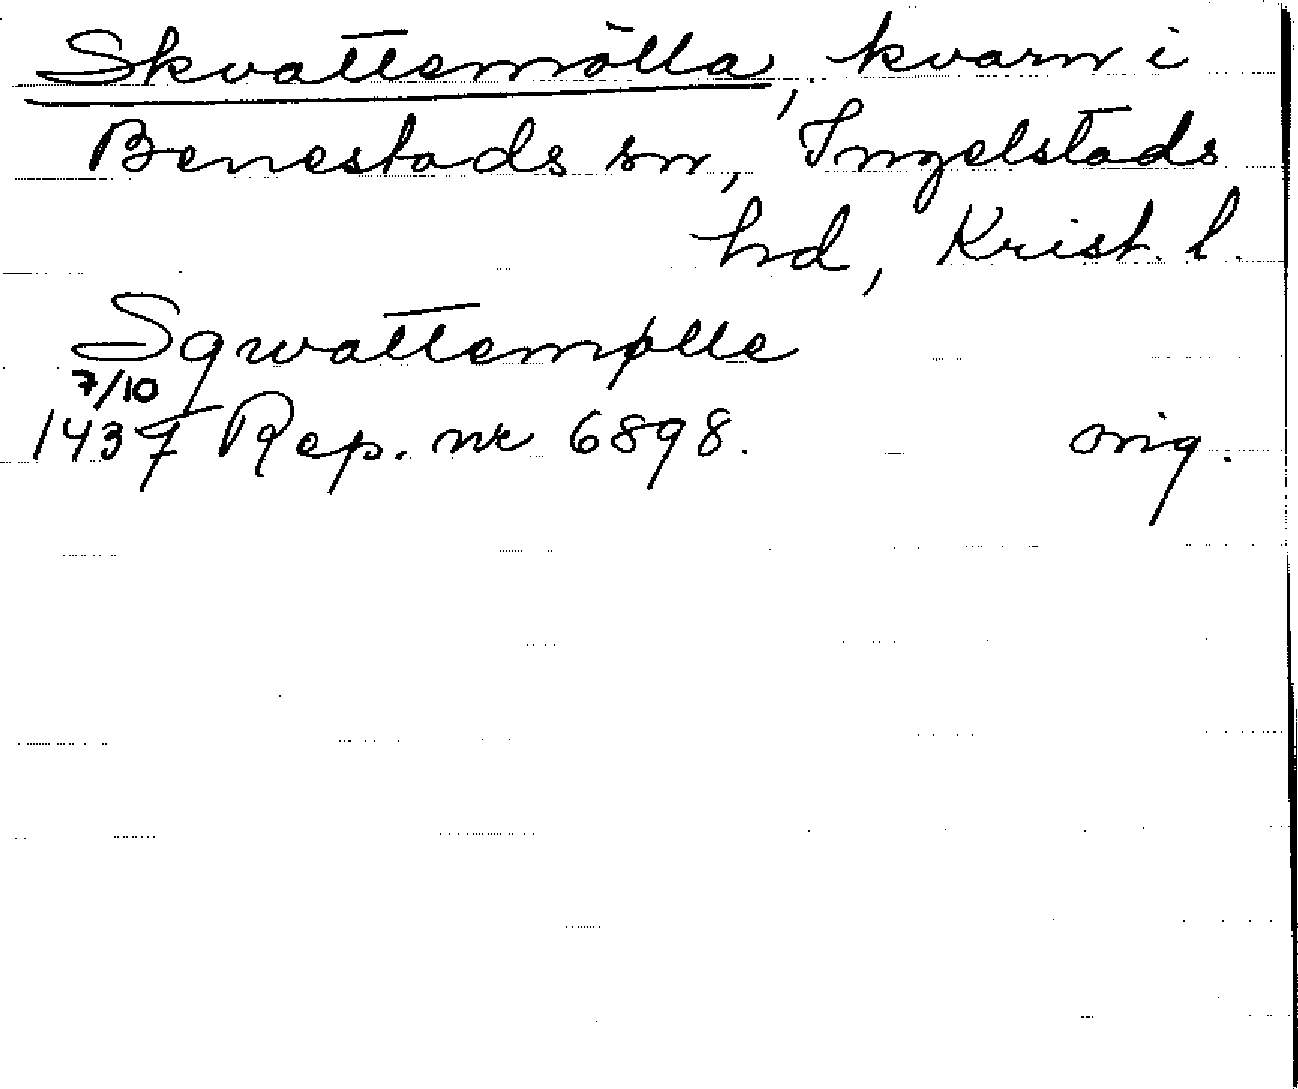 Skvattemölla, kvarn i
Benestads sn, Ingelstads
hd, Krist. l.
Sqwattemølle
7/10
1437 Rep. nr 6898. orig.